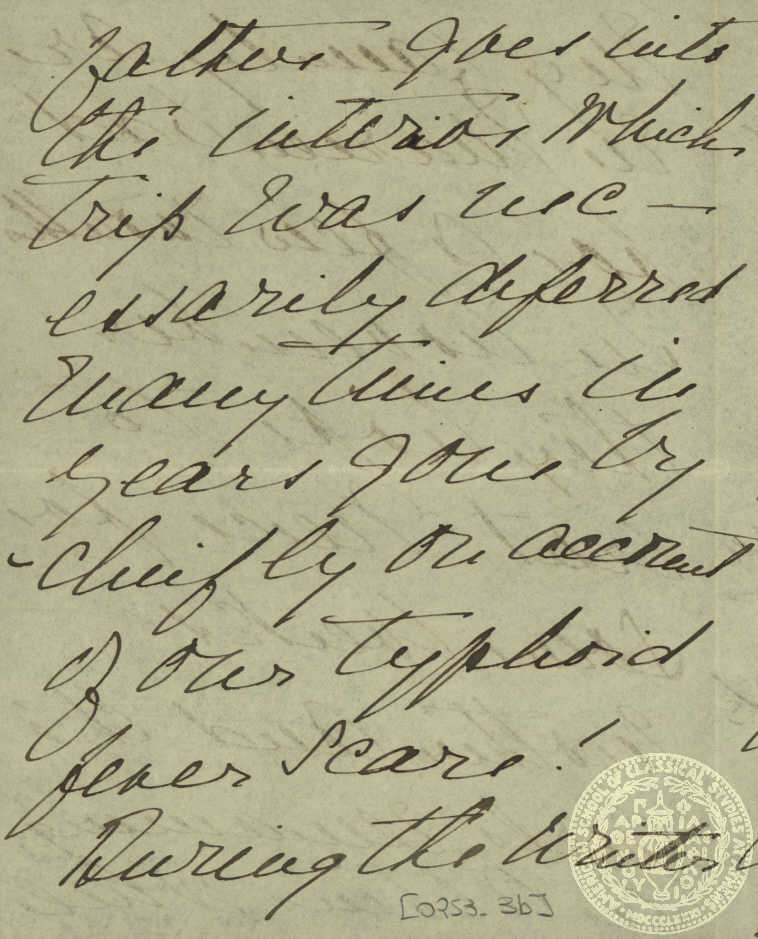 father goes into
the interior which
trip was nec-
essarily deferred
many times in
years gone by
-chiefly on account
of our typhoid
fever scare!
During the Winter
[OPS3_3b]
AMERICAN SCHOOL OF CLASSICAL STUDIES AT ATHENS
MDCCCLXXXI